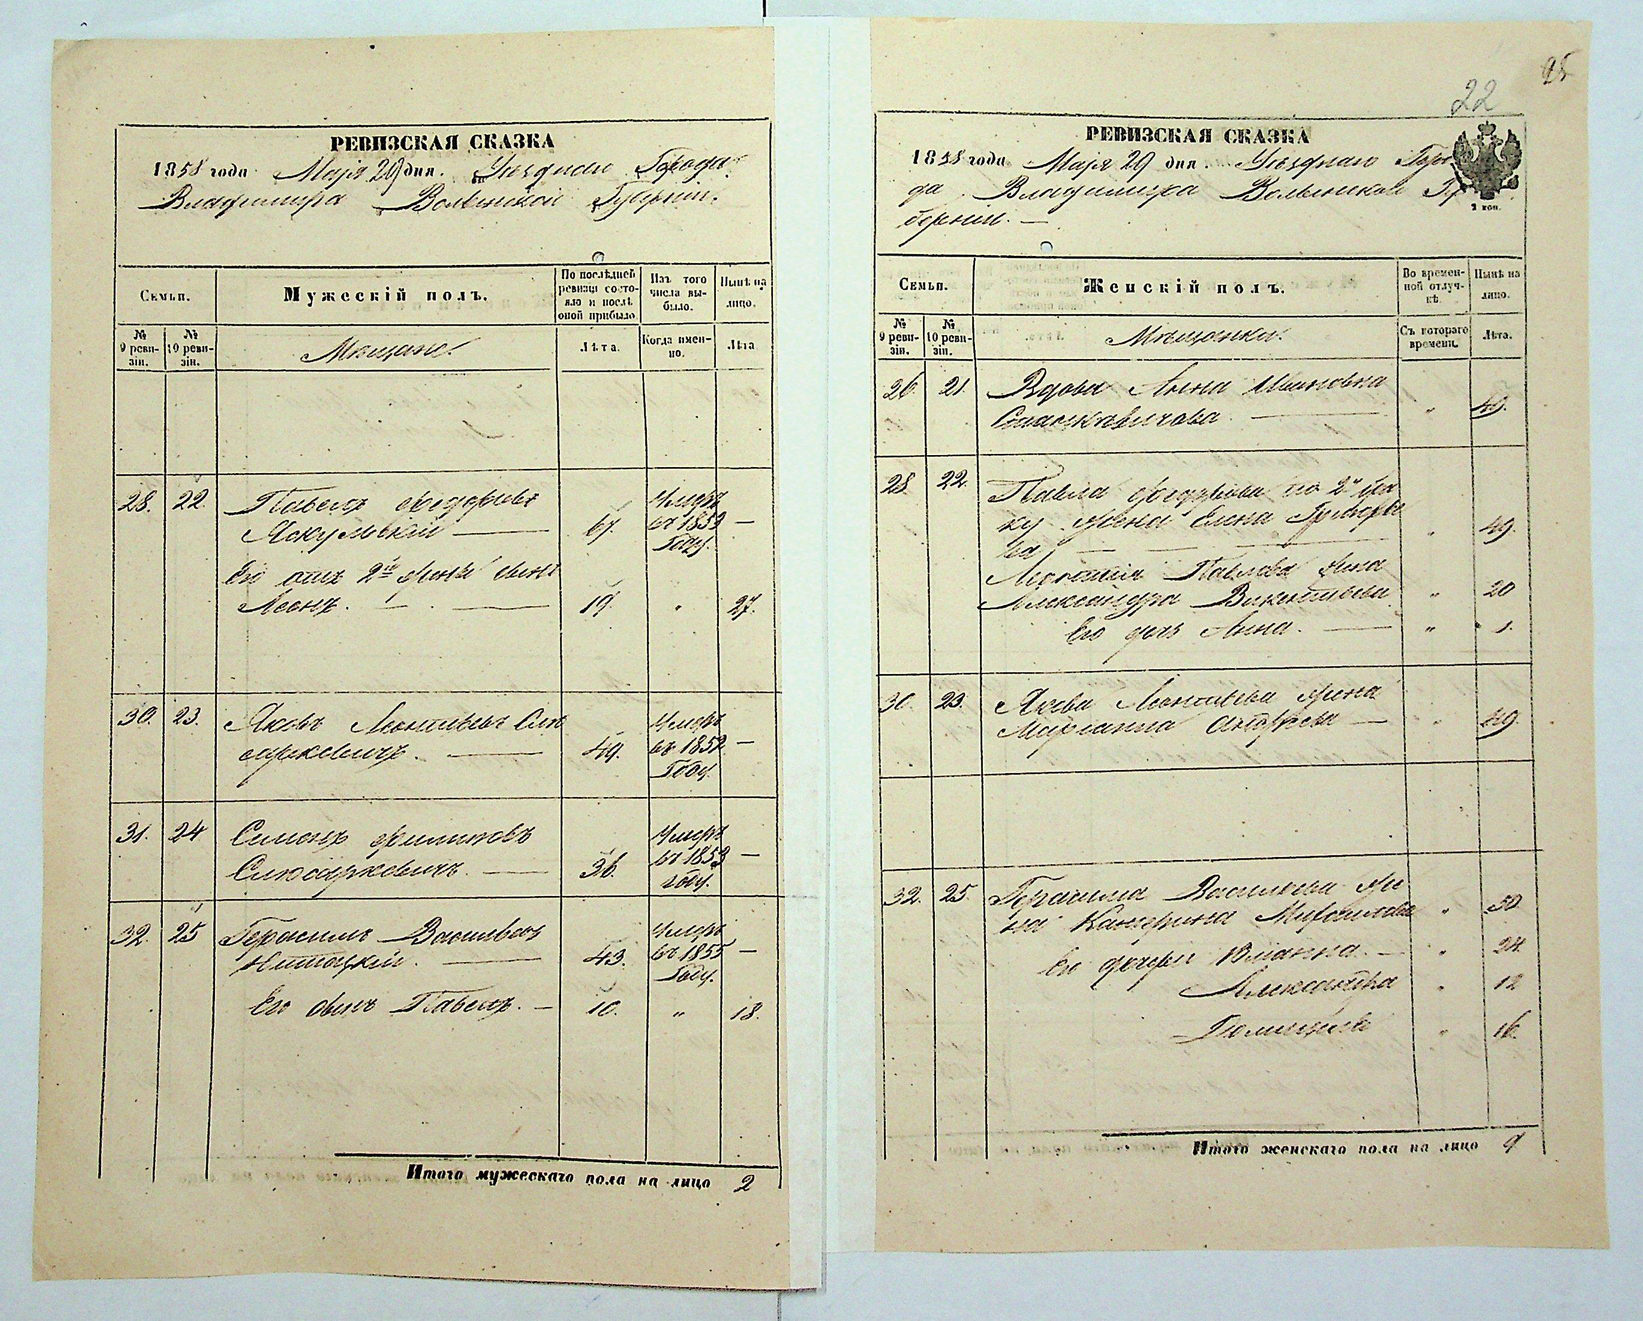 РЕВИЗСКАЯ СКАЗКА
1858 года Маія 29 дня. Уѣзднаго Города
Владимира Волынской Губерніи.
Семьи.
Мужескій полъ.
По послѣдней ревизіи состояло и послѣ оной прибыло
Изъ того числа выбыло.
Нынѣ на лицо.
№ 9 ревизіи.
№ 10 ревизіи.
Мѣщане.
Лѣта.
Когда именно.
Лѣта
28. 22. Павелъ Федоровъ
67. Умеръ въ 1853 Году. —
Его отъ 2й жены сынъ
Леонъ. — 19. „ 27.
30. 23. Яковъ Леонтьевъ Слю
сарковичъ. — 49. Умеръ въ 1852 Году. —
31. 24 Симонъ Филиповъ
Слюсарковичъ. — 36. Умеръ въ 1853 году. —
32. 25 Герасимъ Васильевъ
43. Умеръ въ 1855 Году. —
Его сынъ Павелъ. — 10. „ 18.
Итого мужескаго пола на лицо 2
25
22
РЕВИЗСКАЯ СКАЗКА
1858 года Маія 29 дня. Уѣзднаго Горо
да Владимира Волынской Гу
берніи. —
Семьи.
Женскій полъ.
Во временной отлучкѣ.
Нынѣ на лицо.
№ 9 ревизіи.
№ 10 ревизіи.
Мѣщанки.
Съ котораго времени.
Лѣта.
26 21. Вдова Анна Ивановна
— „ 49.
28 22. Павла Федорова по 2му бра
ку жена Елена Григорье
ва — „ 49.
Павлова жена
Александра Викентьева „ 20
Его дочь Анна. — „ 1.
30. 23. Якова Леонтьева жена
Маріанна Андреева — „ 49
32. 25. Герасима Васильева же
на Катерина Михайлова „ 50
Его дочери Юліанна. — „ 24
Александра „ 12
„ 16.
Итого женскаго пола на лицо 9